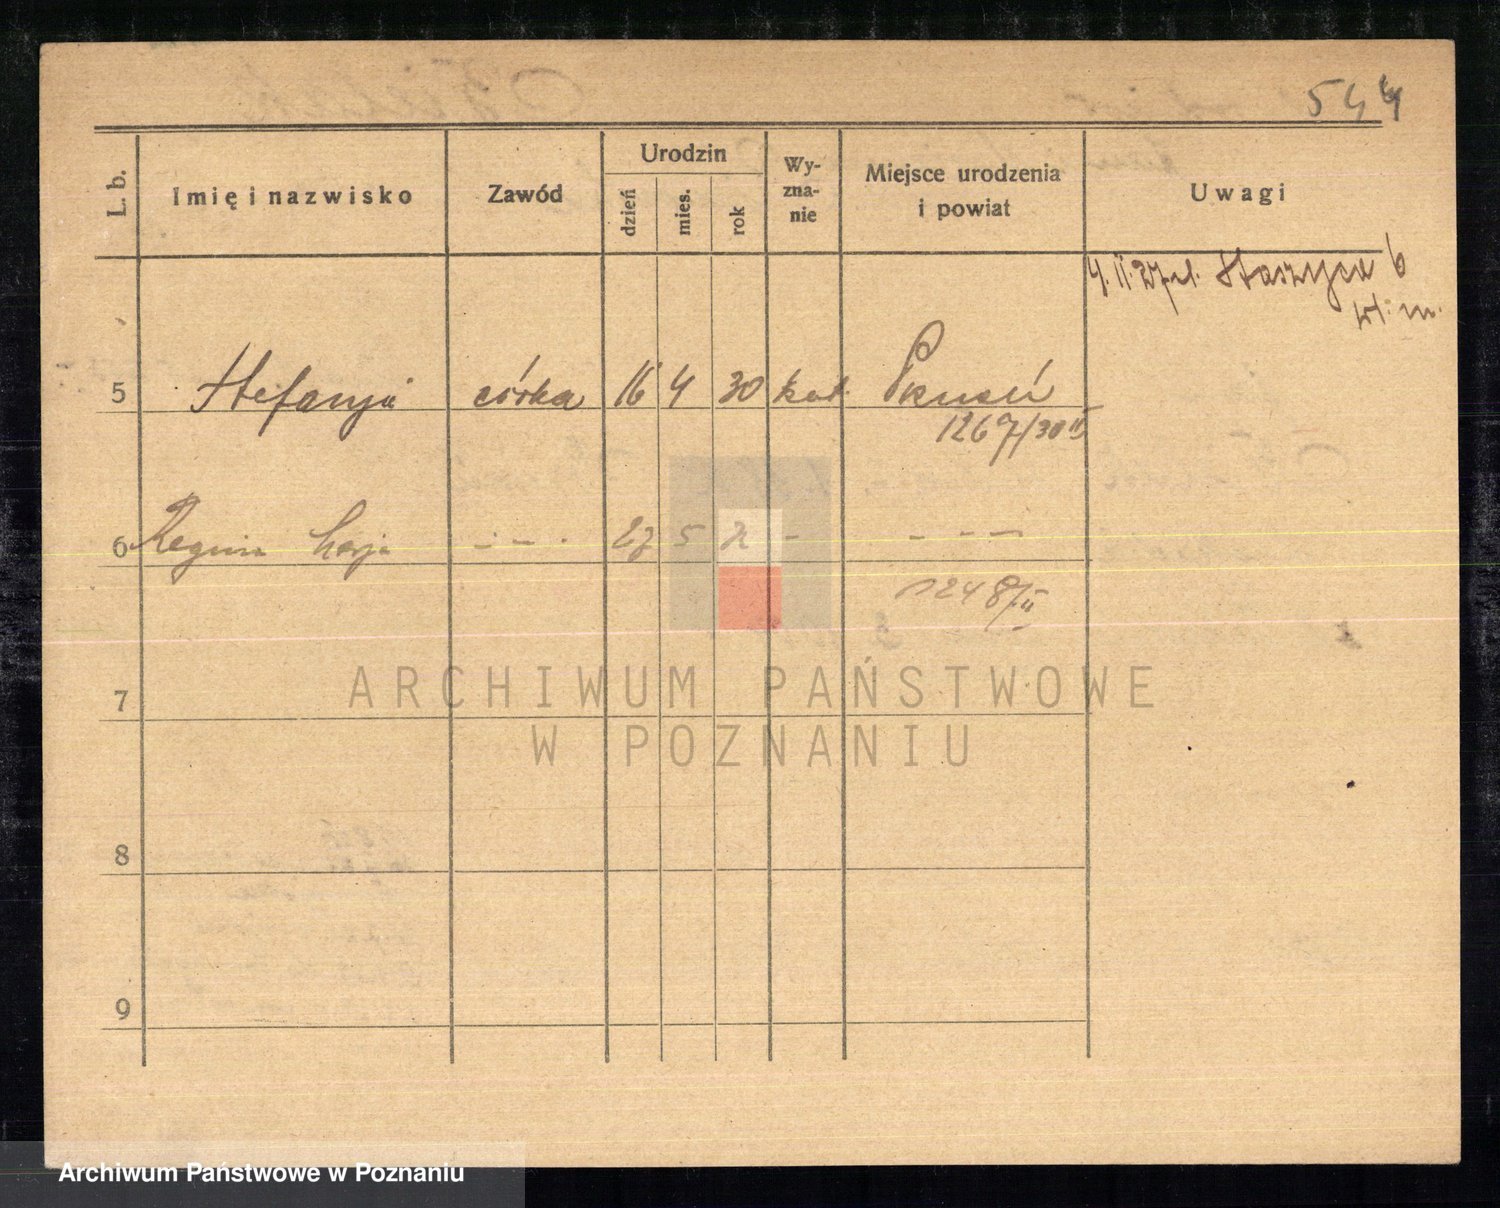 544
L. b.
Imię i nazwisko
Zawód
Urodzin
dzień
mies.
rok
Wy-
zna-
nie
Miejsce urodzenia
i powiat
Uwagi
4. 11. 37 Staszyca 6
5 Stefanja córka 16 4 30 kat. Poznań
1267/30 II
6 Regina Marja - - - 27 5 - - - -
1248/II
7
8
9
ARCHIWUM PAŃSTWOWE
W POZNANIU
Archiwum Państwowe w Poznaniu